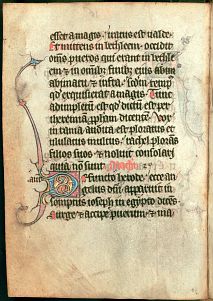 esset a magis. iratus est ualde.
Et mittens in bethleem. occidit
om̄s pueros qui erant in bethle
em et in omīb; finib; eius abim
abimatu et infra. scdm temp̄
qd exquisierat a magis. Tunc
adimpletū est qd dictū est per
iheremiam prophām dicentē. Vox
in rama audita est ploratus et
ululatus multus. rachel plorās
filios suos et noluit consolari
quia nō sunt.
Defuncto herode. ecce an
gelus dn̄i apparuit in
sompnis ioseph in egypto dicēs
surge et accipe puerum et ma